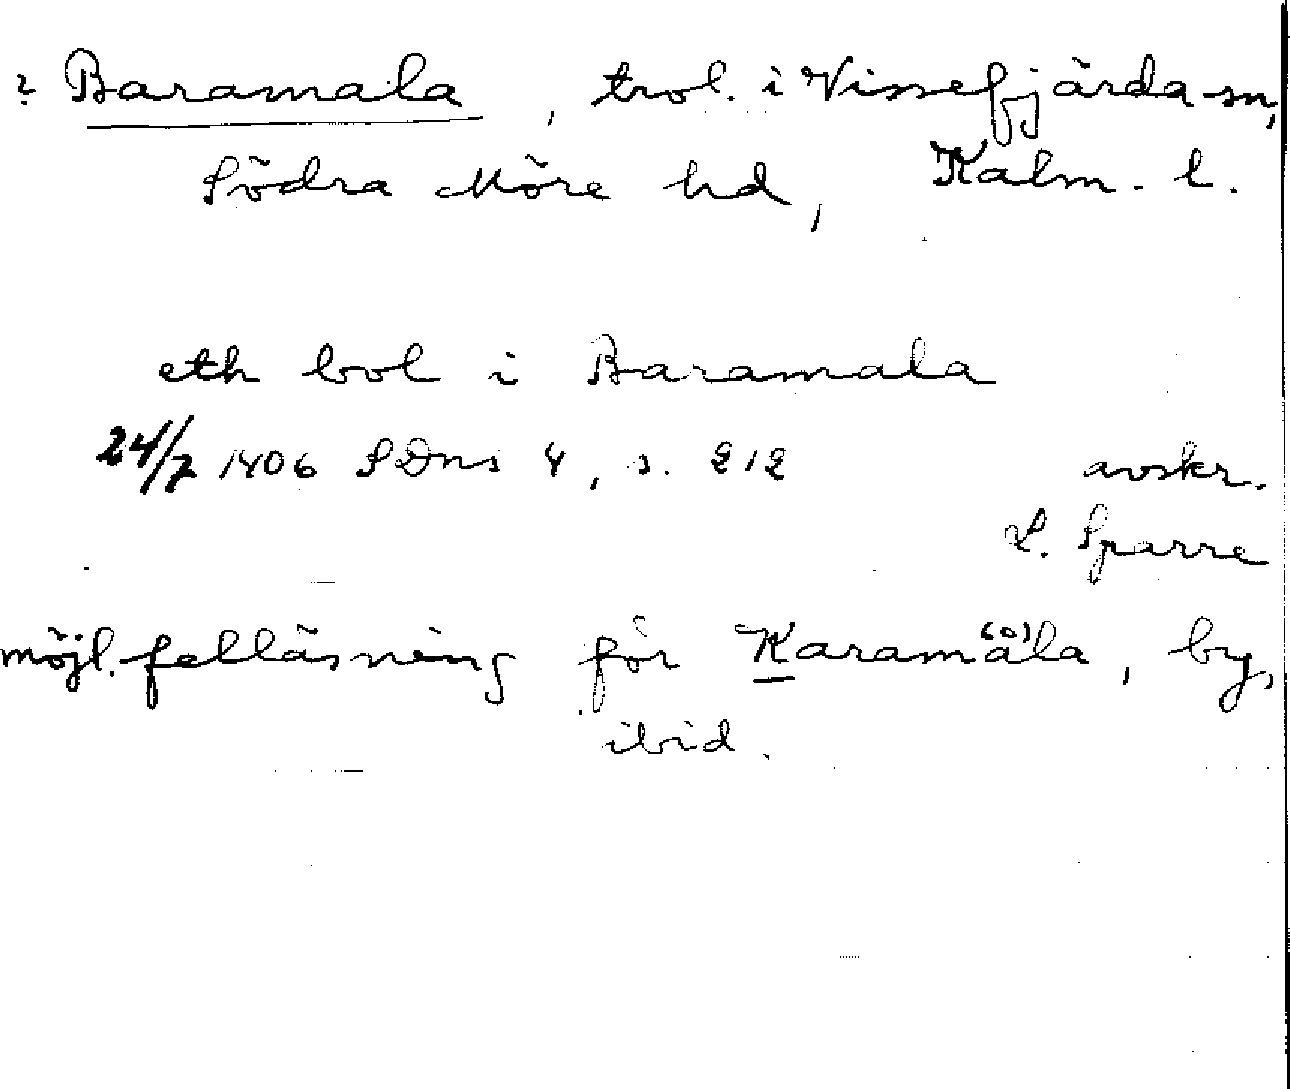 ? Baramala, trol. i Vissefjärda sn,
Södra Möre hd, Kalm. l.
eth bol i Baramala
24/7 1406 SDns 4, s. 212 avskr.
L. Sparre
möjl. felläsning för Karamåla, by,
ibid.